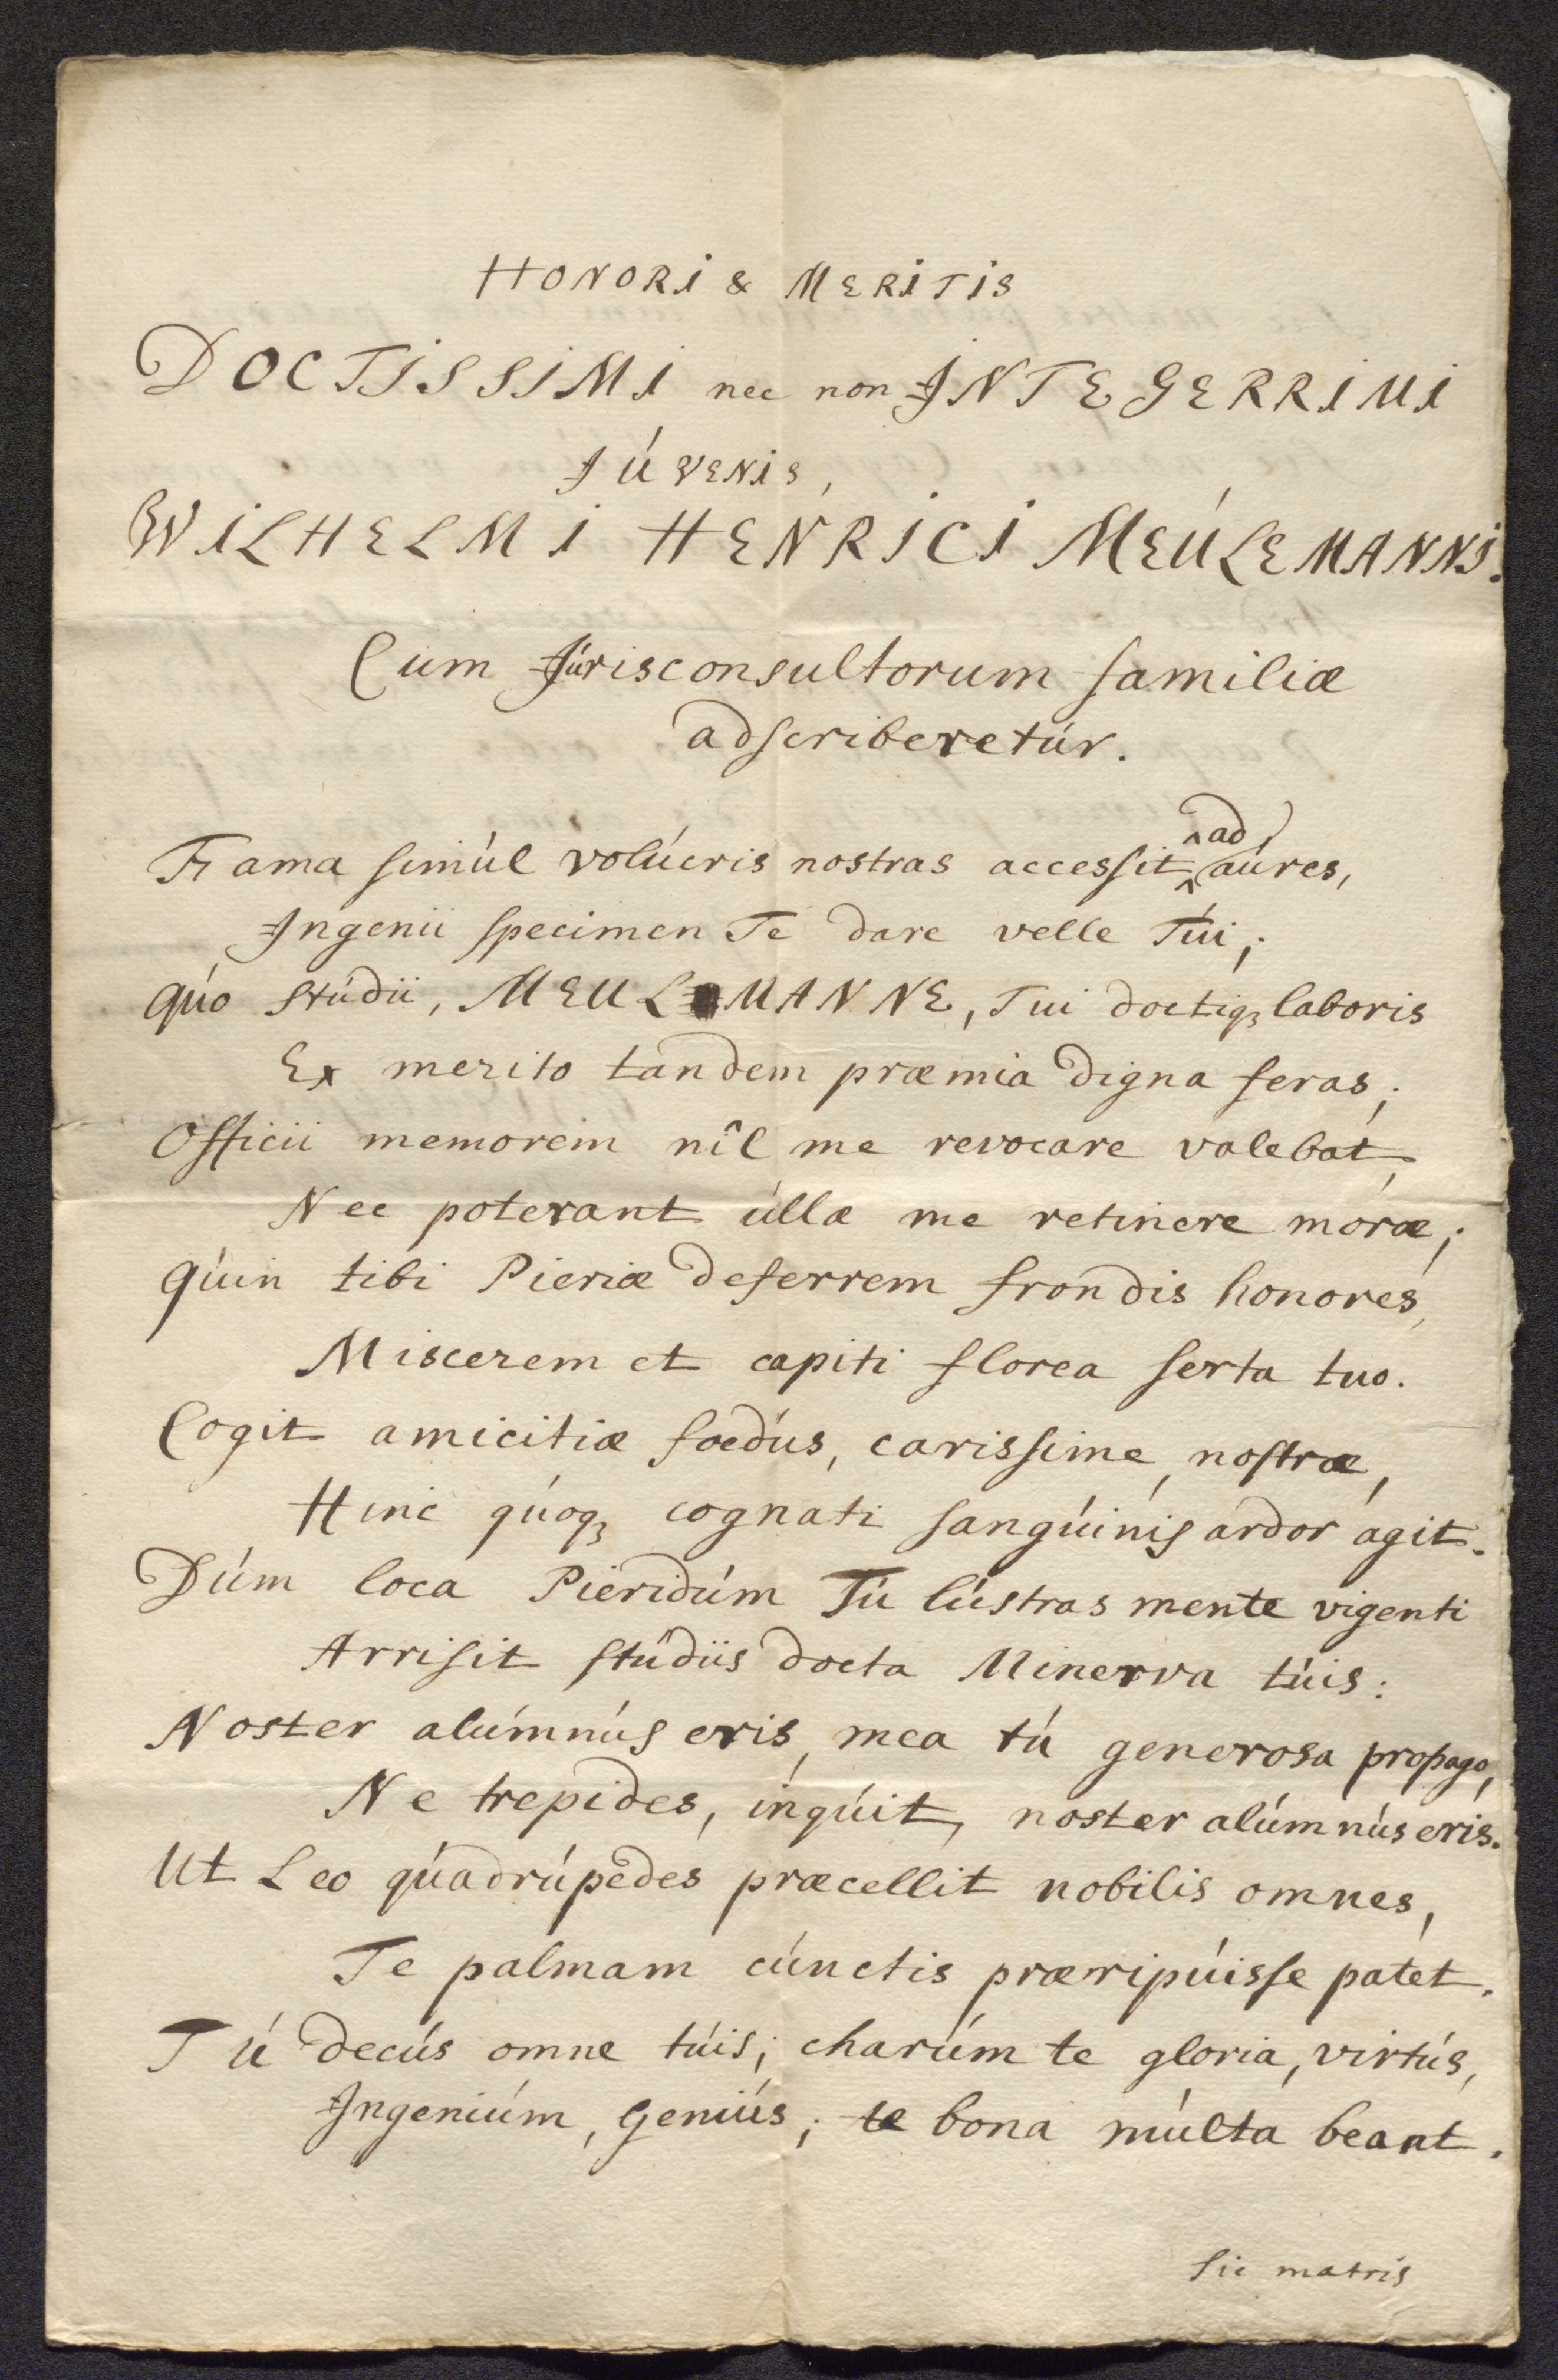 HONORI & MERITIS
DOCTISSIMI nec non INTEGERRIMI
JÚVENIS,
WILHELMI HENRICI MEÚLEMANNI.
Cum Júrisconsultorum familiæ
adscriberetúr.
Fama simúl volúcris nostras accessit ad aúres,
Ingenii specimen Te dare velle Túi;
Qúo stúdii, MEULEMANNE, Tui doctiqꝫ laboris
Ex merito tandem præmia digna feras;
Officii memorem nîl me revocare valebat,
Nec poterant úllæ me retinere moræ;
Qúin tibi Pieriæ deferrem frondis honores,
Miscerem et capiti florea serta tuo.
Cogit amicitiæ foedús, carissime, nostræ,
Hinc qúoqꝫ cognati sangúinis ardor agit.
Dúm loca Pieridúm Tú lústras mente vigenti
Arrisit stúdiis docta Minerva túis:
Noster alúmnús eris, mea tú generosa propago,
Ne trepides, inqúit, noster alúmnús eris.
Ut Leo qúadrúpedes præcellit nobilis omnes,
Te palmam cúnctis præripúisse patet.
Tú decús omne túis; charúm te gloria, virtús,
Ingeniúm, Geniús; te bona múlta beant.
Sic matris